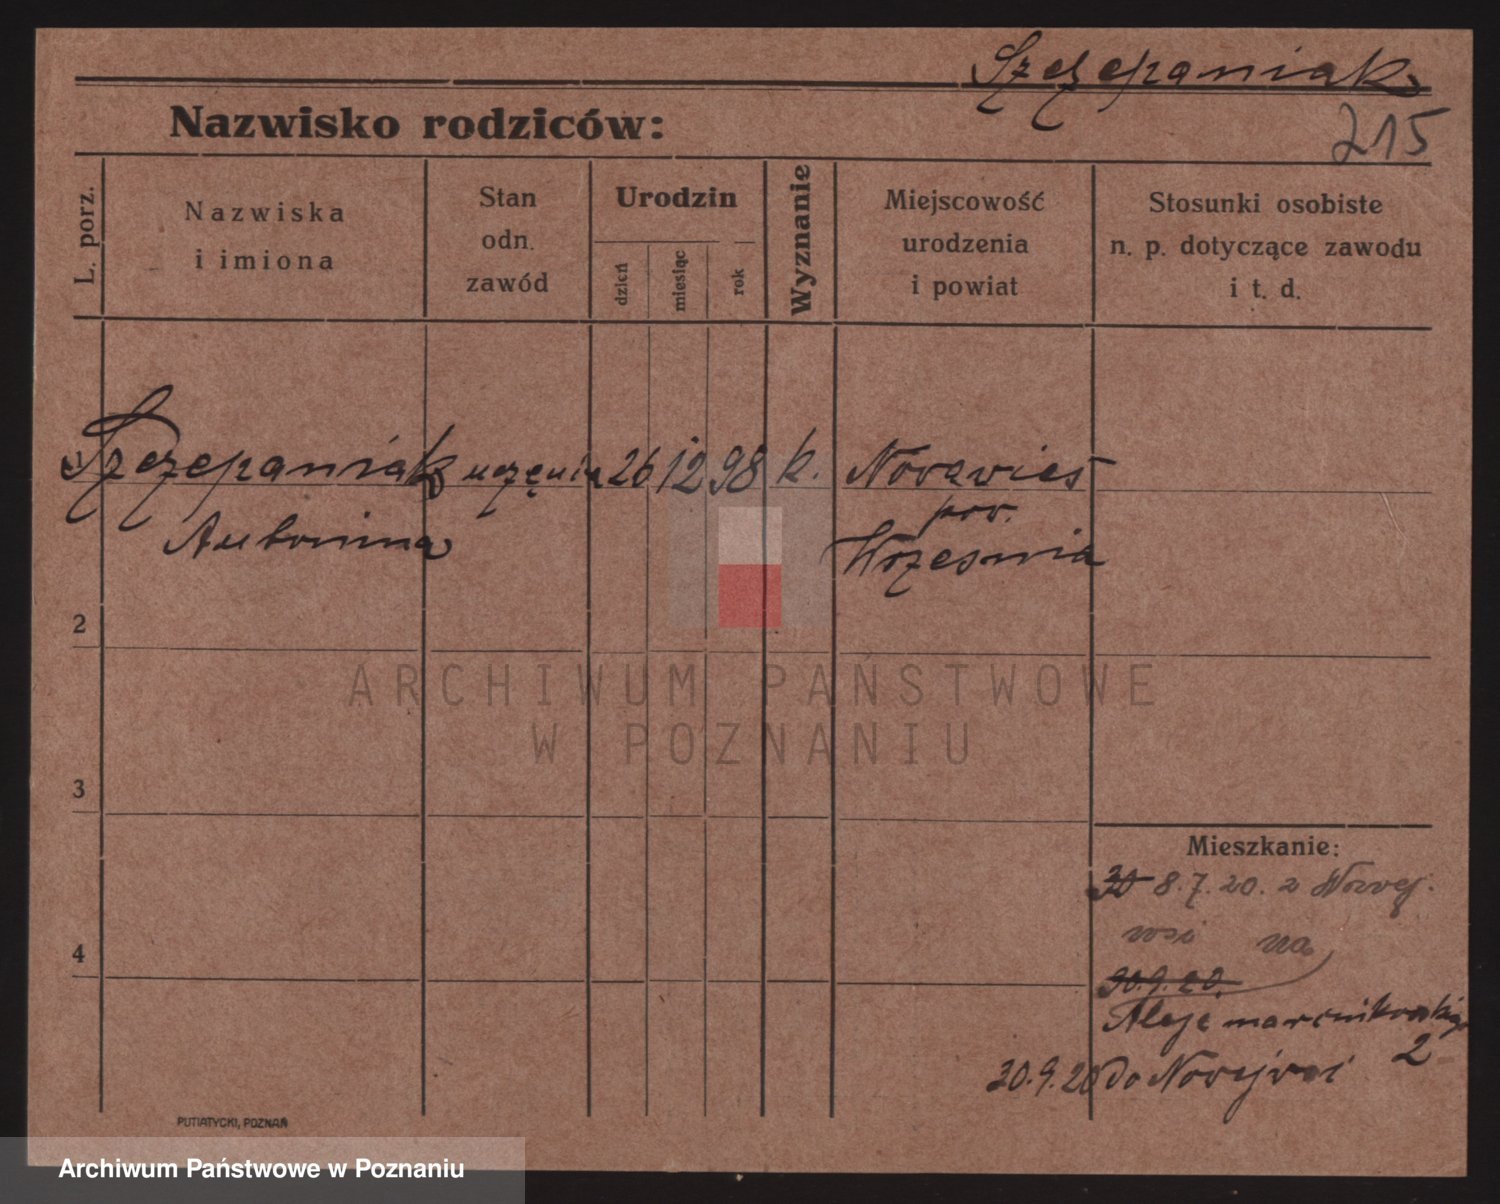 Szczepaniak
215
Nazwisko rodziców:
L. porz.
Nazwiska
i imiona
Stan
odn.
zawód
Urodzin
dzień
miesiąc
rok
Wyznanie
Miejscowość
urodzenia
i powiat
Stosunki osobiste
n. p. dotyczące zawodu
i t. d.
1 Szczepaniak uczenia 26 12 98 k. Nowawieś
Antonina
pow.
Września
2
3
4
Mieszkanie:
30 8.7.20. z Nowej
wsi na
30.9.20.
Aleje marcinkowskiego
2
30.9.20 do Nowejwsi
PUTIATYCKI, POZNAŃ
ARCHIWUM PAŃSTWOWE
W POZNANIU
Archiwum Państwowe w Poznaniu